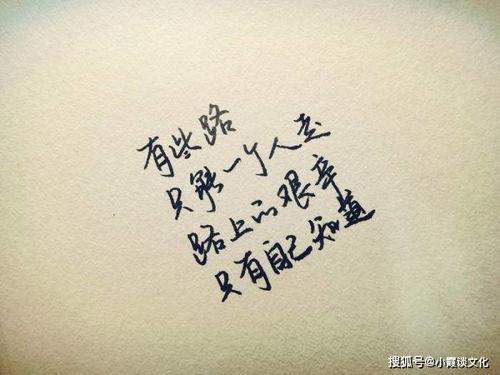 有些路
只能一个人走
路上的艰辛
只有自己知道
搜狐号@小霞谈文化